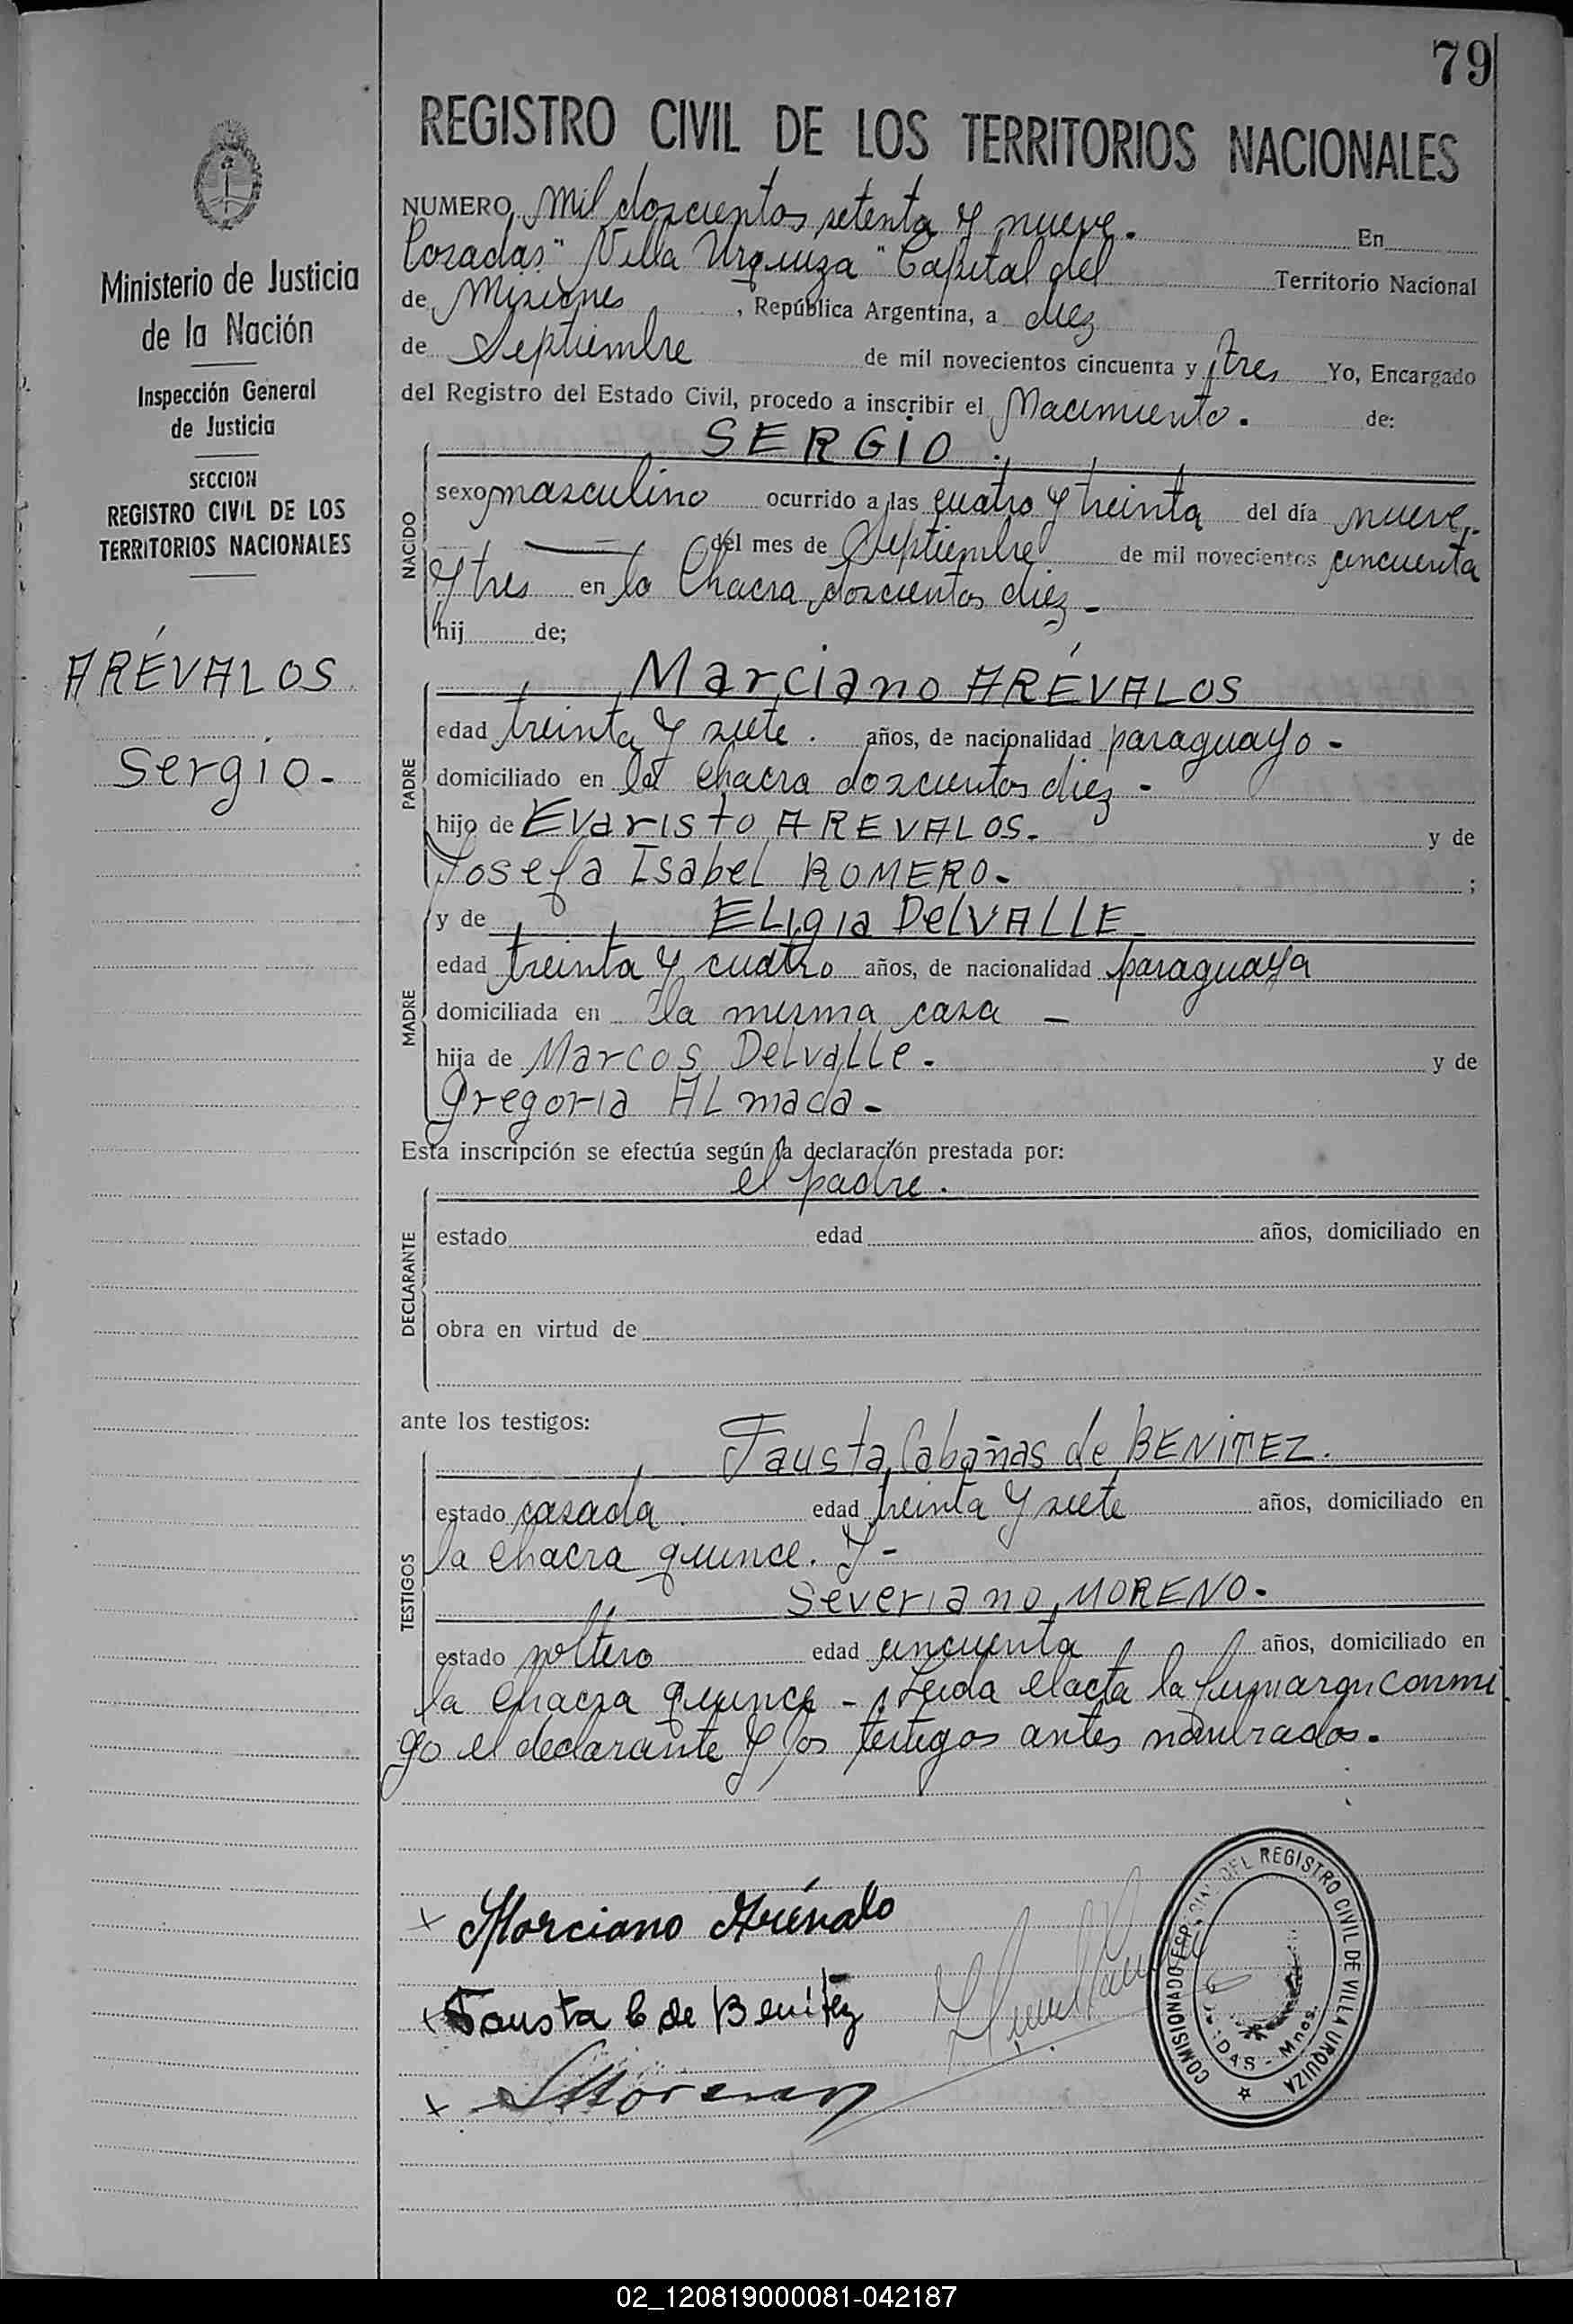 79
REGISTRO CIVIL DE LOS TERRITORIOS NACIONALES
Ministerio de Justicia
de la Nación
Inspección General
de Justicia
SECCION
REGISTRO CIVIL DE LOS
TERRITORIOS NACIONALES
ARÉVALOS
Sergio-
NUMERO mil doscientos setenta y nueve. En
Posadas "Villa Urquiza" Capital del Territorio Nacional
de Misiones, República Argentina, a diez
de Septiembre de mil novecientos cincuenta y tres Yo, Encargado
del Registro del Estado Civil, procedo a inscribir el Nacimiento. de:
SERGIO.
NACIDO
sexo masculino ocurrido a las cuatro y treinta del día nueve
del mes de Septiembre de mil novecientos cincuenta
y tres en la Chacra doscientos diez-
hij de;
Marciano ARÉVALOS
PADRE
edad treinta y siete. años, de nacionalidad paraguayo-
domiciliado en la chacra doscientos diez-
hijo de Evaristo AREVALOS- y de
Josefa Isabel ROMERO- ;
y de ELigia DelVALLE-
MADRE
edad treinta y cuatro años, de nacionalidad paraguaya
domiciliada en la misma casa-
hija de Marcos DelvaLLe- y de
Gregoria ALmada-
Esta inscripción se efectúa según la declaración prestada por:
el padre.
DECLARANTE
estado edad años, domiciliado en
obra en virtud de
ante los testigos:
Fausta Cabañas de BENITEZ.
TESTIGOS
estado casada edad treinta y siete años, domiciliado en
la chacra quince. Y-
Severiano MORENO-
estado soltero edad cincuenta años, domiciliado en
la chacra quince- Leida el acta la firmaron conmi
go el declarante y los testigos antes nombrados.
x Marciano Arévalo
x Fausta C de Benitez
x SMoreno
COMISIONADO DEL REGISTRO CIVIL DE VILLA URQUIZA
DAS - Mnes.
02_120819000081-042187